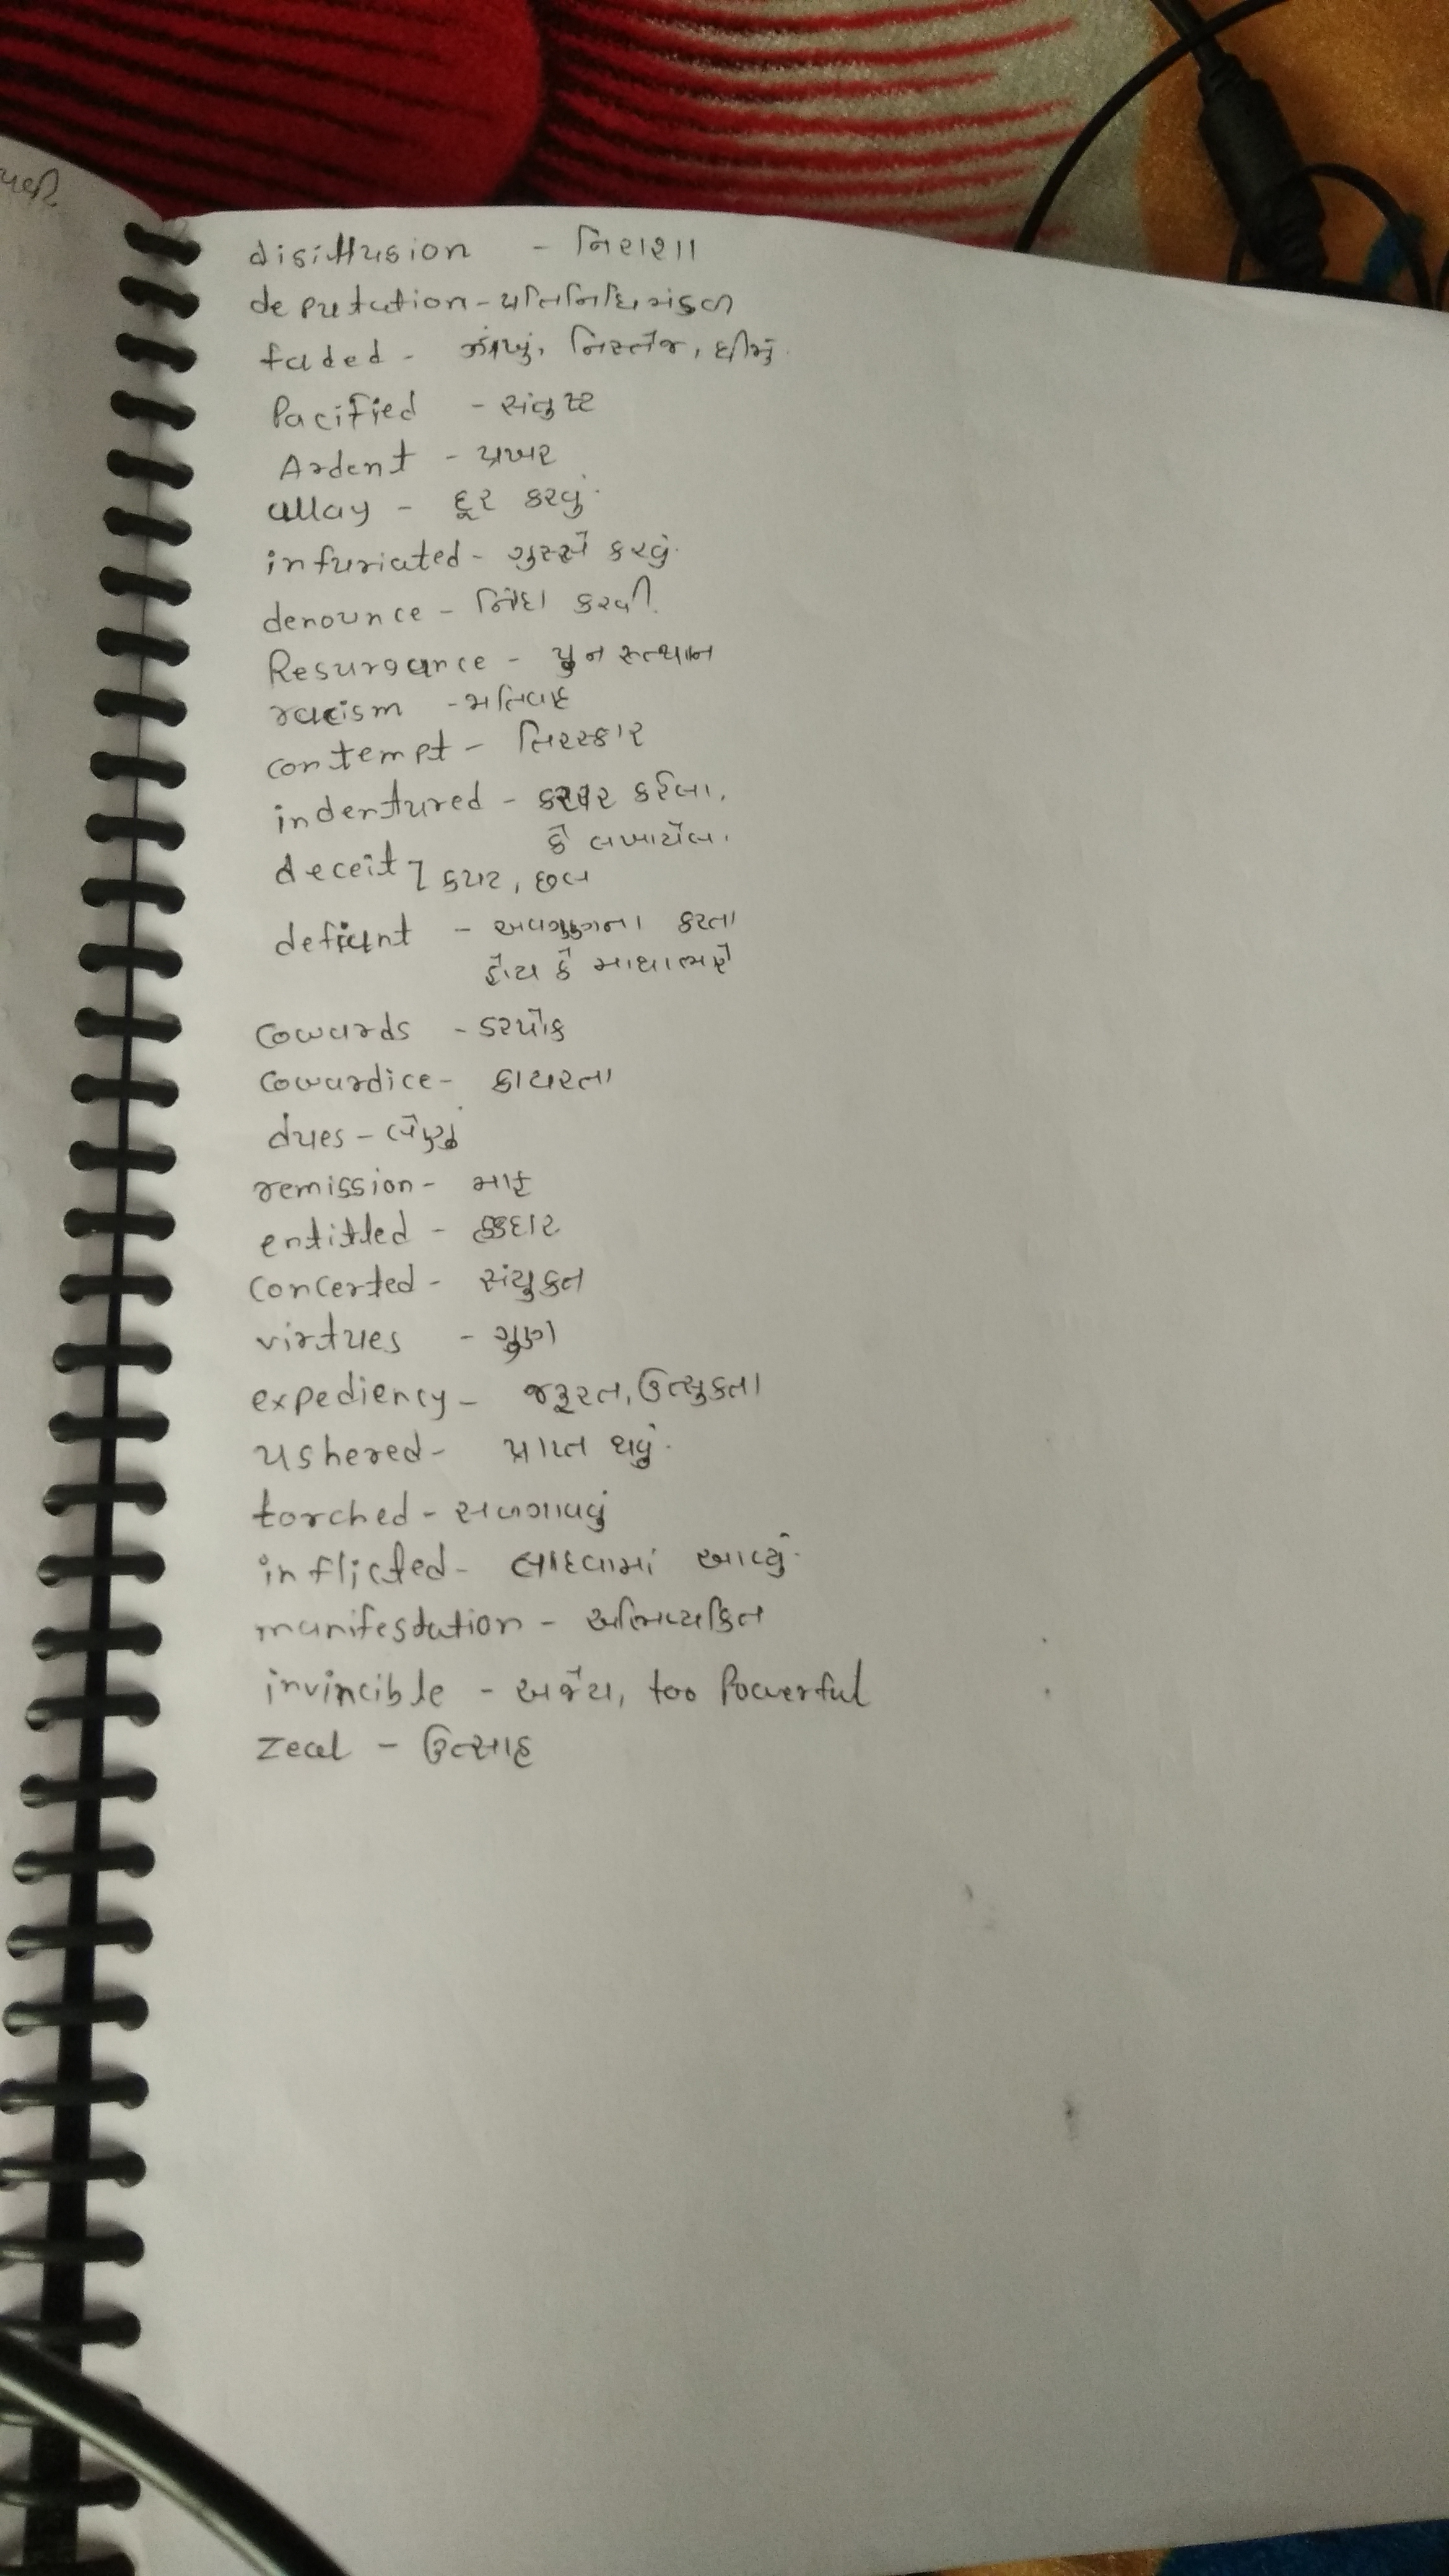 disillusion - નિરાશા
deputation - પ્રતિનિધિમંડળ
faded - ઝાંખું, નિસ્તેજ, ધીમું.
Pacified - સંતુષ્ટ
Ardent - પ્રખર
allay - દૂર કરવું.
infuriated - ગુસ્સે કરવું.
denounce - નિંદા કરવી.
Resurgance - પુનરુત્થાન
racism - જાતિવાદ
contempt - તિરસ્કાર
indentured - કરાર કરેલા,
કે લખાયેલ.
deceit - કપટ, છલ
defiant - અવગણના કરતા
હોય કે માથાભારે
Cowards - ડરપોક
Cowardice - કાયરતા
dues - લેણું
remission - માફ
entitled - હકદાર
Concerted - સંયુક્ત
virtues - ગુણો
expediency - જરૂરત, ઉત્સુકતા
ushered - પ્રાપ્ત થવું.
torched - સળગાવવું
inflicted - લાદવામાં આવ્યું.
manifestation - અભિવ્યક્તિ
invincible - અજેય, too Powerful
Zeal - ઉત્સાહ